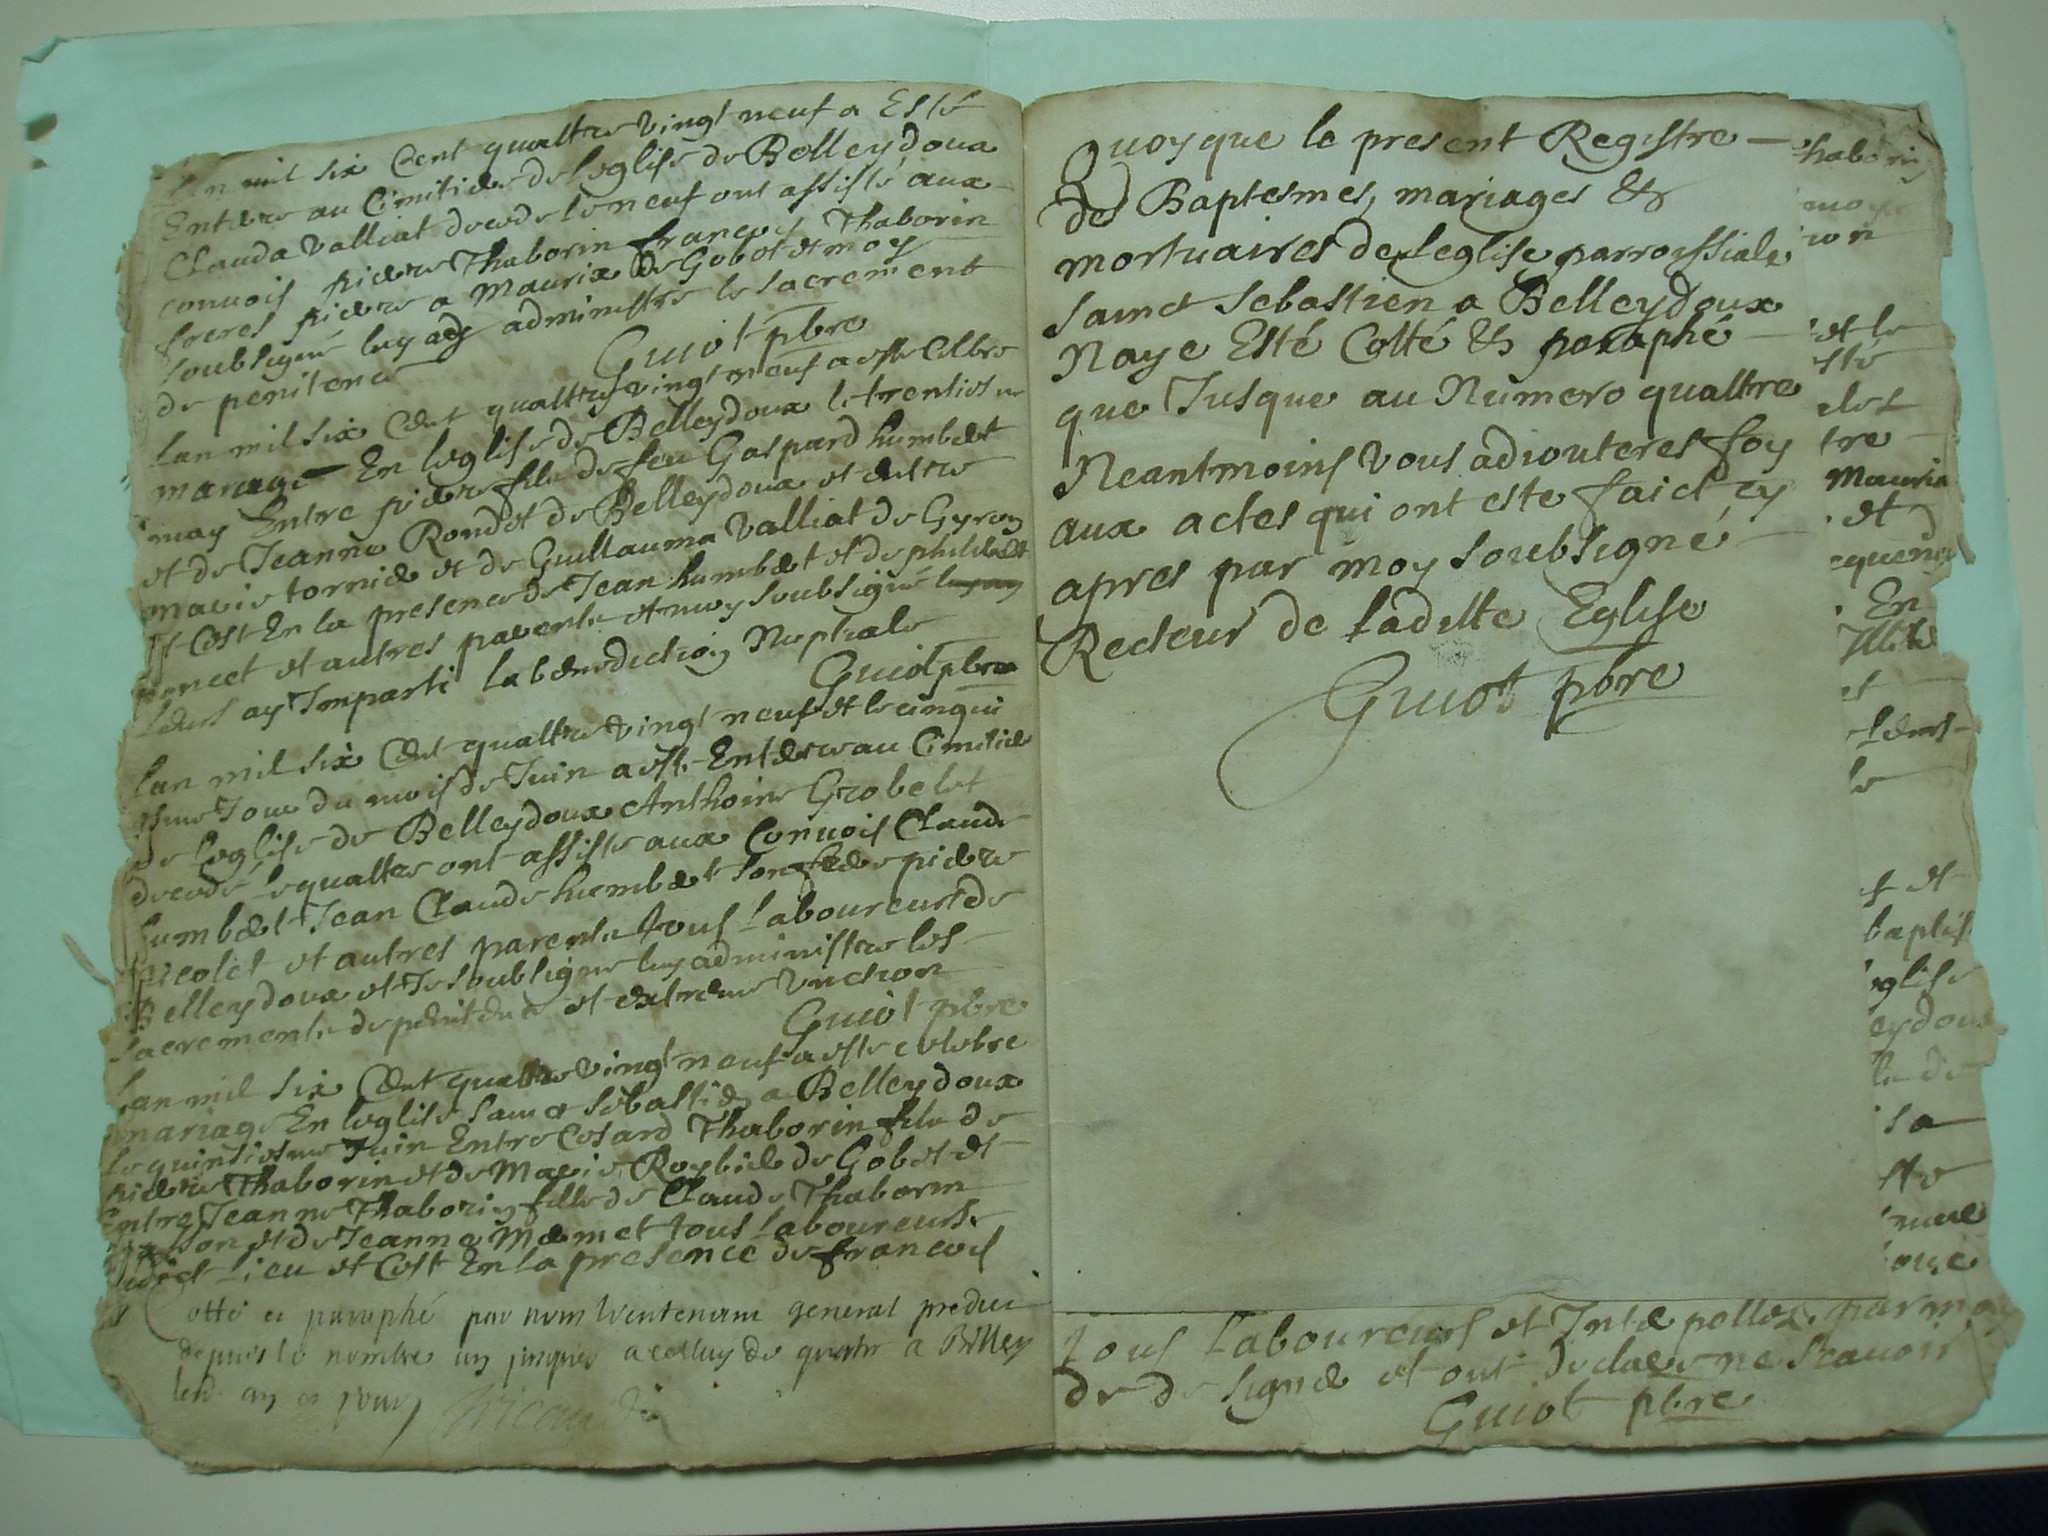 Lan mil six Cent quattre vingt neuf a Esté
Enterre au Cimitier de leglise de Belleydoux
Clauda Valliat decede le neuf ont assisté aux
conuois pierre Thaborin francois Thaborin
freres pierre a Mauris de Gobet et moy
soubsigné luy ay administré le sacrement
de penitence Guiot pbre
Lan mil six Cent quattre vingt neuf a este Celbre
mariage En leglise de Belleydoux le trentiesme
may Entre pierre fils de feu Gaspard humbert
et de Jeanne Rondet de Belleydoux et entre
marie tornier et de Guillauma Valliat de Gyron
Et Cest En la presence de Jean humbert et de philibert
poncet et autres parents et moy soubsigné
leurs ay Imparti la benediction Nuptiale
Guiot pbre
Lan mil six Cent quattre vingt neuf et le cinqui
esme Jour du mois de Juin a este Enterre au Cimitier
de leglise de Belleydoux Anthoine Grobelet
decedé le quattre ont assiste aux Conuois Claude
humbert Jean Claude humbert son frere pierre
nicolet et autres parents tous Laboureurs de
Belleydoux et Je soubsigne luy administre les
sacrements de penitence et extreme Vnction
Guiot pbre
Lan mil six Cent quattre vingt neuf a este celebre
mariage En leglise sainct sebastien a Belleydoux
le quinsiesme Juin Entre Cesard Thaborin fils de
pierre Thaborin et de Marie Roybier de Gobet et
Entre Jeanne Thaborin fille de Claude Thaborin
et de Jeanne Mermet tous Laboureurs
lieu et Cest En la presence de francois
Cotté et paraphé par nous lieutenant general
depuis le nombre un jusques a celluy de quatre a Belley
les an et jour
Quoyque le present Registre
des Baptesmes, mariages &
mortuaires de Leglise parroissiale
sainct sebastien a Belleydoux
Naye Esté Cotté & paraphé
que Jusque au Numero quattre
Neantmoins vous adiouteres foy
aux actes qui ont este faict cy
apres par moy soubsigné
Recteur de Laditte Eglise
Guiot pbre
tous Laboureurs et Interpelles par moy
de de signer et ont declare ne scauoir
Guiot pbre
thaborin
moy
et le
tre
Mauris
et
En
et
leurs
le
et
baptis
eglise
eydoux
sa